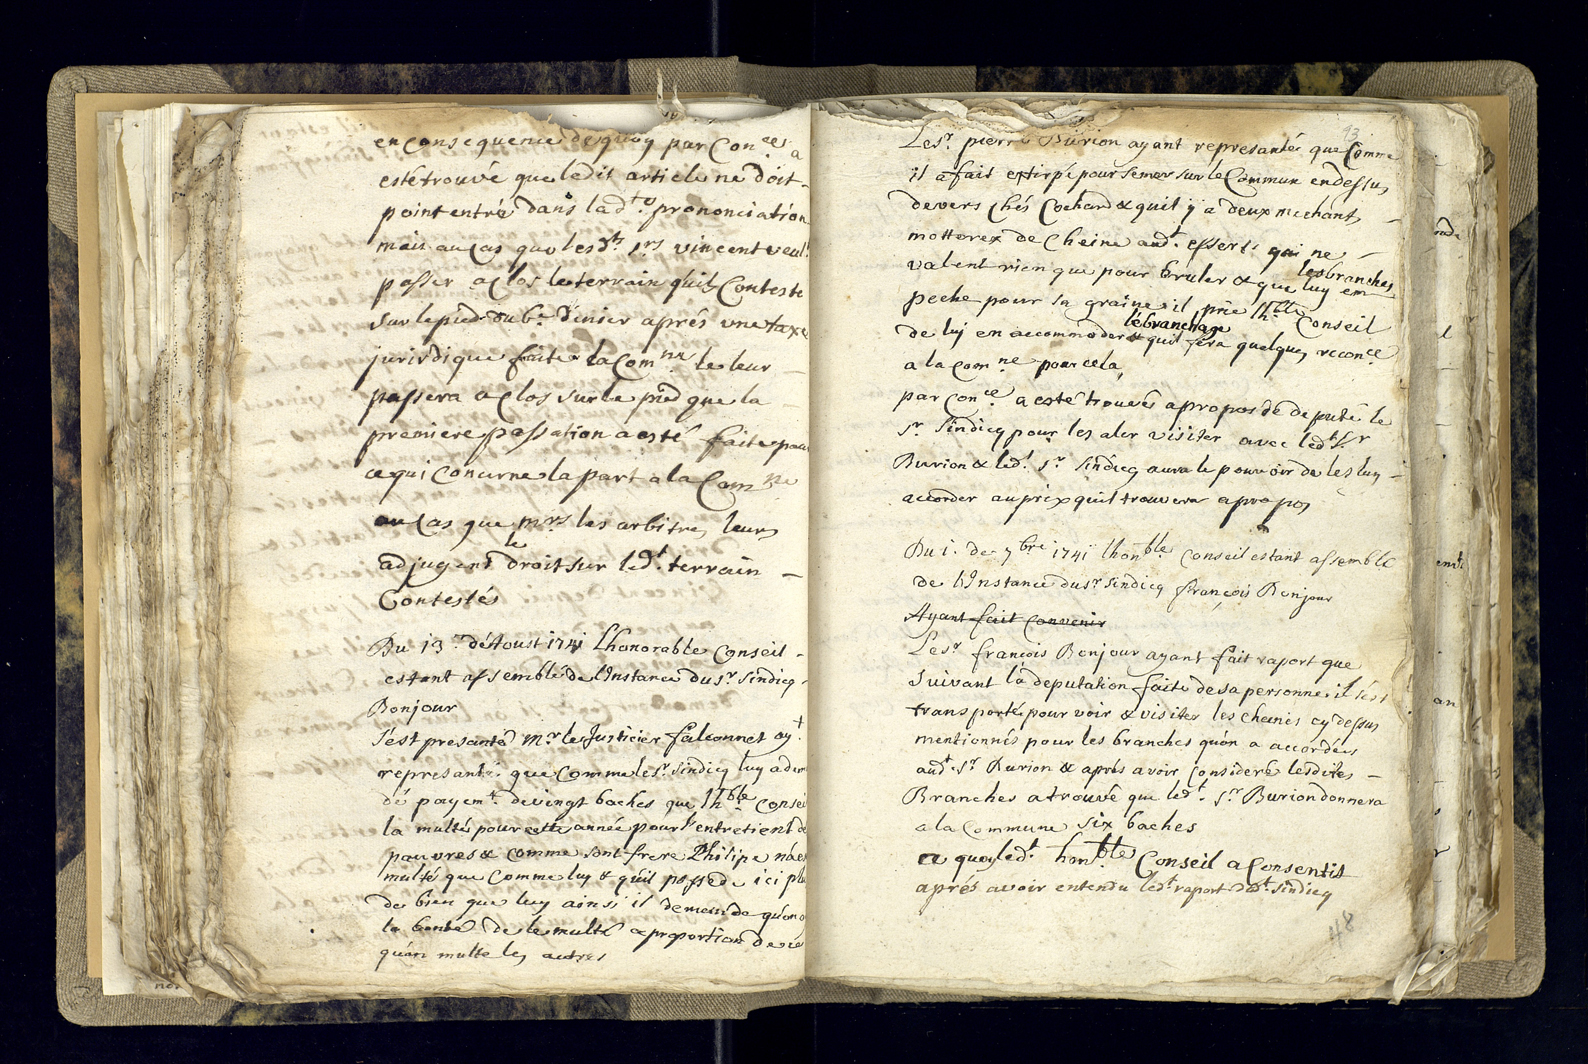 en consequence dequoy par Con.ce a
esté trouvé que ledit article ne doit
point entré dans lad.te prononciation
mais au Cas que lesd.ts srs vincent veul.t
passer a Clos le terrain quils Conteste
sur le pied du 6.e denier aprés une taxe
juridique faite la Com.ne le leur
passera a Clos sur le pied que la
premiere passation a esté faite pour
ce qui Concerne la part a la Com.ne
au Cas que Mrs les arbitres leurs
adjugent le droit sur led.t terrain
Contestés
Du 13.e d'Aoust 1741 Lhonorable Conseil
estant assemblé de l'Instance du sr. Sindicq
Bonjour
S'est presanté Mr. le Justicier falconnet ay.t
represanté que Comme le sr. Sindicq luy a dem
dé payem.t de vingt baches que lh.ble Consei
la multé pour cette année pour l'entretient de
pauvres & comme sont frere Philipe na e
multé que Comme luy & qu'il possede ici plu
de bien que luy ainsi il demende qu'on
la bonté de le multé a proportion de ce
qu'on multe les autres
93
Le sr. pierre Burion ayant represantés que Comme
il a fait extirpé pour semer sur le Commun en dessus
devers Chés Cochard & quil y a deux mechant
motterex de Cheine aud.t essert qui ne
valent rien que pour bruler & que les branches luy em
peche pour sa graine il prie lh.ble Conseil
de luj en accommoder l'ébranchage & quil fera quelques reconce
a la Com.ne pour cela,
par Con.ce a esté trouvés a propos de deputé le
sr. Sindicq pour les aler visiter avec led.t Sr
Burion & led.t sr. Sindicq aura le pouvoir de les luy
accorder au prix quil trouvera a propos
Du 1. de 7bre 1741 lhon.ble Conseil estant assemblé
de l'Instance du sr. Sindicq François Bonjour
Ayant fait Convenir
Le sr. françois Bonjour ayant fait raport que
suivant la deputation faite de sa personne il sest
transporté pour voir & visiter les cheines cy dessus
mentionnés pour les branches qu'on a accordées
aud.t sr. Burion & aprés avoir consideré lesdites
Branches a trouvé que led.t sr. Burion donnera
a la Commune six baches
a quoy led.t hon.ble Conseil a Consentis
aprés avoir entendu led.t raport dud.t Sindicq
48